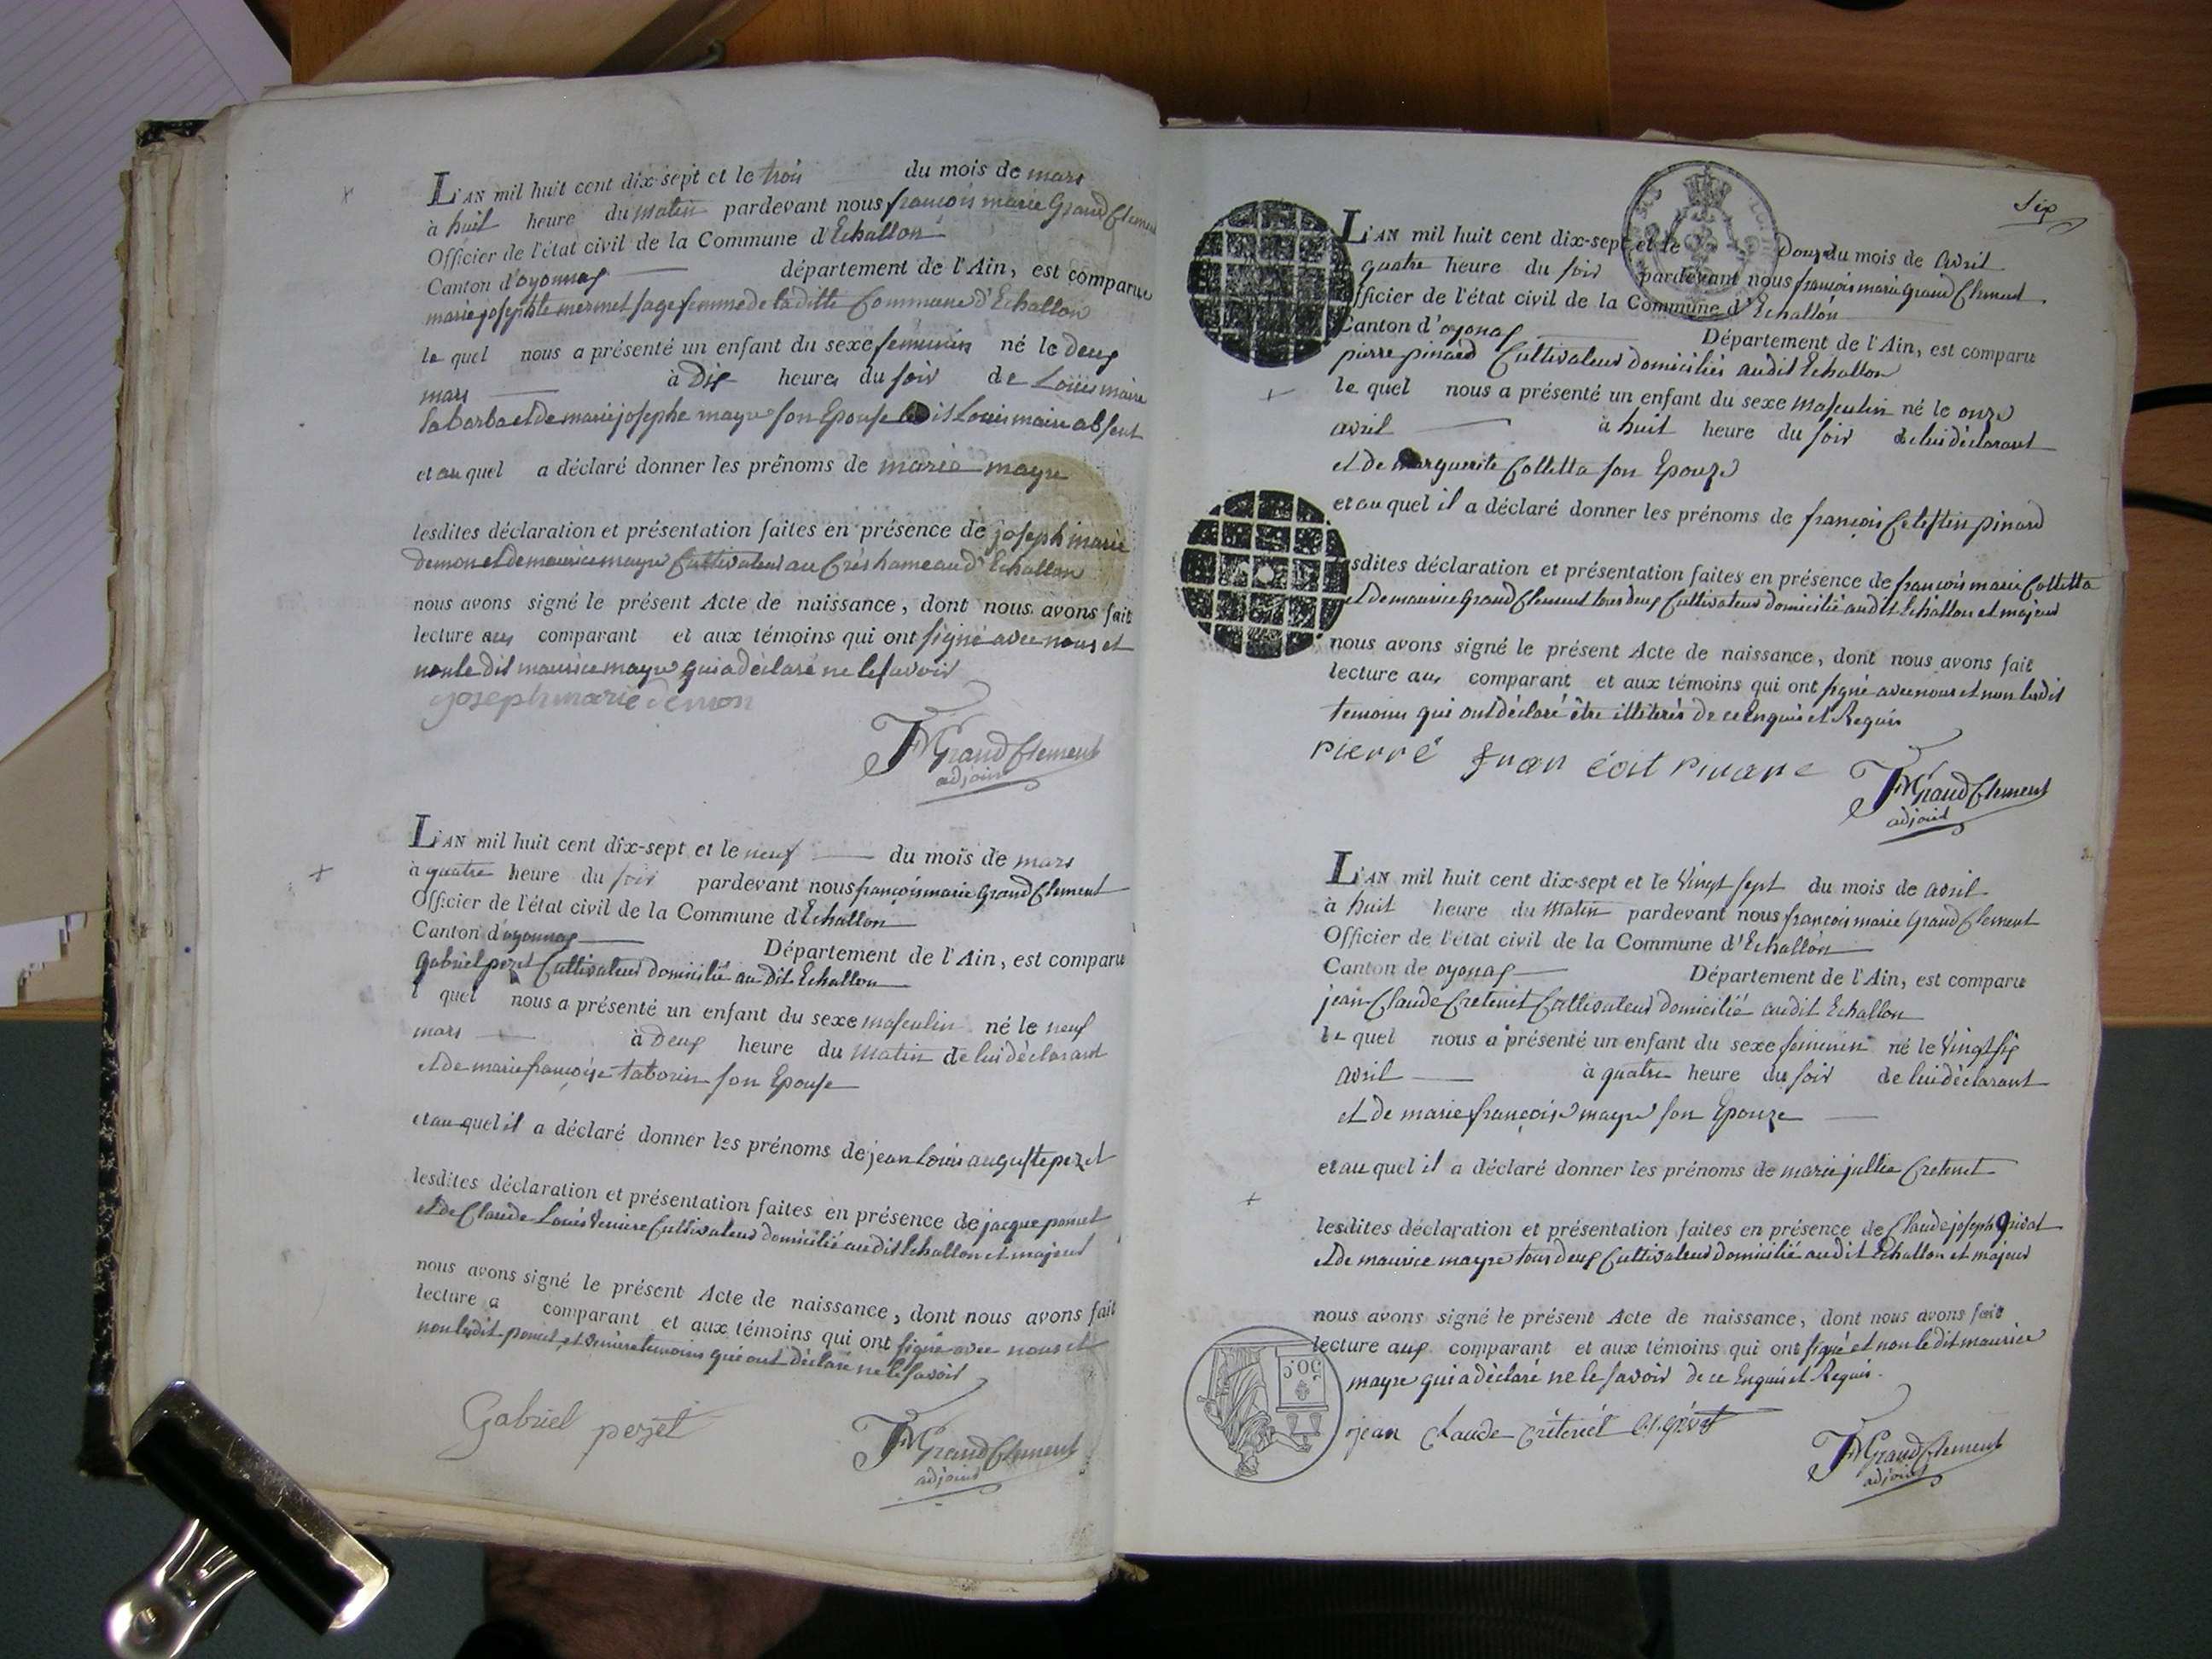 L'AN mil huit cent dix-sept et le trois du mois de mars
à huit heure du matin pardevant nous françois marie Grand Clement
Officier de l'état civil de la Commune d'Echallon
Canton d'oyonnax département de l'Ain, est comparue
marie josephte mermet sage femme de la ditte Commune d'Echallon
le quel nous a présenté un enfant du sexe feminin né le deux
mars à Dix heures du soir de Loüis maire
labarba et de marie josephe mayre son Epouse le dit Louis maire absent
et au quel a déclaré donner les prénoms de marie mayre
lesdites déclaration et présentation faites en présence de joseph marie
demon et de maurice mayre Cultivateur au Crêt hameau d'Echallon
nous avons signé le présent Acte de naissance, dont nous avons fait
lecture aux comparant et aux témoins qui ont signé avec nous et
non le dit maurice mayre qui a déclaré ne le savoir
joseph marie demon
FMGrandClement
adjoint
L'AN mil huit cent dix-sept et le neuf du mois de mars
à quatre heure du soir pardevant nous françois marie Grand Clement
Officier de l'état civil de la Commune d'Echallon
Canton d'oyonnax Département de l'Ain, est comparu
Gabriel pezet Cultivateur domicilié au Dit Echallon
l quel nous a présenté un enfant du sexe masculin né le neuf
mars à Deux heure du Matin de lui déclarant
et de marie françoise taborin son Epouse
et au quel il a déclaré donner les prénoms de jean Louis auguste pezet
lesdites déclaration et présentation faites en présence de jacque poncet
et de Claude Louis Cultivateur domicilié au dit Echallon et majeur
nous avons signé le présent Acte de naissance, dont nous avons fait
lecture a comparant et aux témoins qui ont signé avec nous et
non lesdit poncet et temoins qui ont déclaré ne le savoir
Gabriel pezet
FMGrandClement
adjoint
Six
L'AN mil huit cent dix-sept et le Douze du mois de avril
à quatre heure du soir pardevant nous françois marie Grand Clement
Officier de l'état civil de la Commune d'Echallon
Canton d'oyonax Département de l'Ain, est comparu
pierre pinard Cultivateur domicilié audit Echallon
le quel nous a présenté un enfant du sexe Masculin né le onze
avril à huit heure du soir de lui déclarant
et de marguerite Colletta son Epouze
et au quel il a déclaré donner les prénoms de françois Celestin pinard
lesdites déclaration et présentation faites en présence de françois marie Colletta
et de maurice Grand Clement tous deux Cultivateur domicilié audit Echallon et majeur
nous avons signé le présent Acte de naissance, dont nous avons fait
lecture aux comparant et aux témoins qui ont signé avec nous et non lesdit
temoins qui ont déclaré être illiterés de ce Enquis et Requis
pierre
FMGrandClement
adjoint
L'AN mil huit cent dix-sept et le Vingt sept du mois de avril
à huit heure du Matin pardevant nous françois marie Grand Clement
Officier de l'état civil de la Commune d'Echallon
Canton de oyonax Département de l'Ain, est comparu
jean Claude Cretenet Cultivateur domicilié audit Echallon
le quel nous a présenté un enfant du sexe feminin né le Vingt six
avril à quatre heure du soir de lui déclarant
et de marie françoise mayre son Epouze
et au quel il a déclaré donner les prénoms de marie jullie Cretenet
lesdites déclaration et présentation faites en présence de Claude joseph Grivat
et de maurice mayre tous deux Cultivateur domicilié audit Echallon et majeur
nous avons signé le présent Acte de naissance, dont nous avons fait
lecture aux comparant et aux témoins qui ont signé et non le dit maurice
mayre qui a déclaré ne le savoir de ce Enquis et Requis.
50C
jean claude créteriét c.j.grivat
FMGrandClement
adjoint